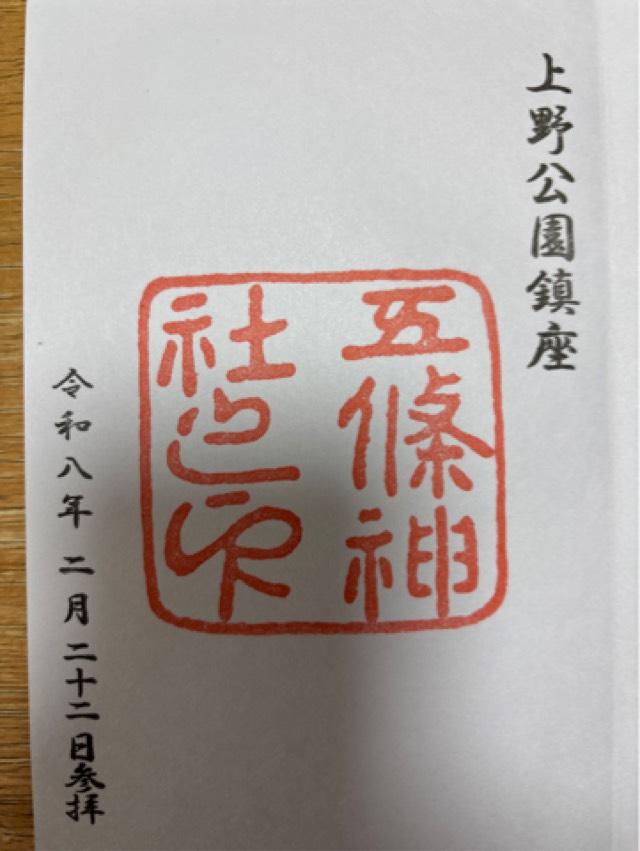 上野公園鎮座
五條神
社之印
令和八年二月二十二日参拝